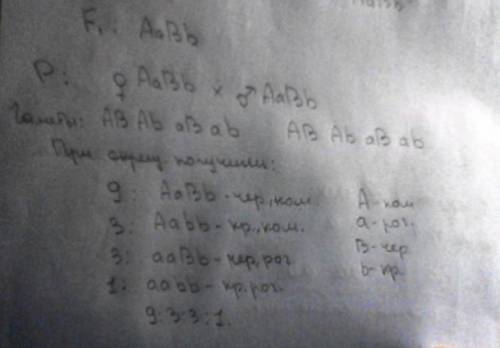 F₁: AaBb
P: ♀ AaBb × ♂ AaBb
Гаметы: AB Ab aB ab AB Ab aB ab
При скрещ. получили:
9: AaBb - чер, ком. A - ком
3: Aabb - кр, ком. a - рог.
3: aaBb - чер, рог. B - чер
1: aabb - кр, рог. b - кр.
9:3:3:1.